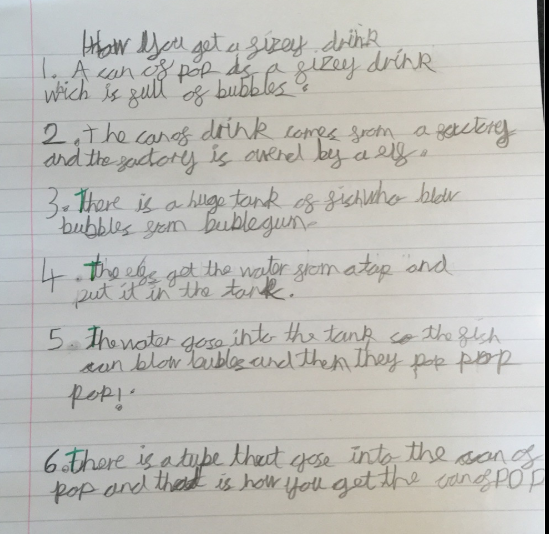 How you get a fizey drink
1. A can of pop is a fizey drink
wich is full of bubbles.
2. The can of drink comes from a factory
and the factory is owend by a elf.
3. There is a huge tank of fish who blow
bubbles from bublegum.
4. The elfs get the water from a tap and
put it in the tank.
5. The water gose into the tank so the fish
can blow bubles and then they pop pop
pop!.
6. There is a type that gose into the can of
pop and that is how you get the can of POP